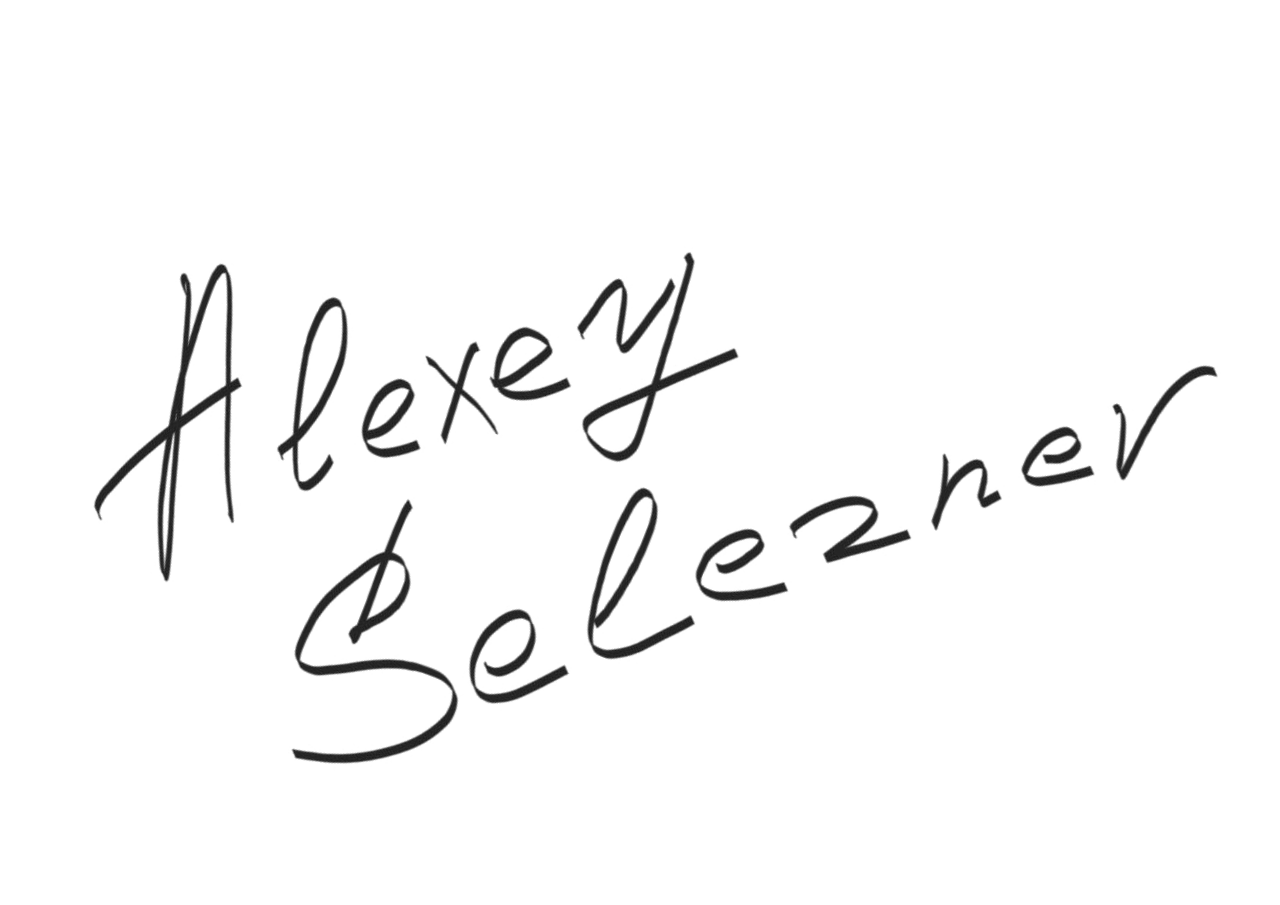 Alexey
Seleznev